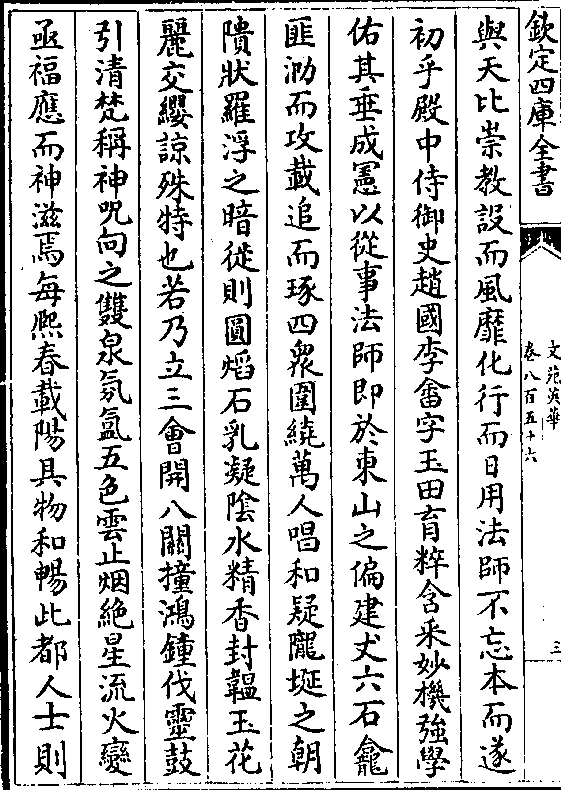 欽定四庫全書
文苑英華
卷八百五十六
三
與天比崇教設而風靡化行而日用法師不忘本而遂
初乎殿中侍御史趙國李畬字玉田育粹含采妙機強學
佑其垂成憲以從事法師即於東山之偏建丈六石龕
匪泐而攻載追而琢四衆圍繞萬人唱和疑隴埏之朝
隤狀羅浮之暗徙則圓熖石乳凝陰水精香封韞玉花
麗交纓諒殊特也若乃立三會開八關撞鴻鐘伐靈鼓
引清梵稱神呪向之雙泉氛氲五色雲止烟絶星流火變
亟福應而神滋焉每熈春載陽具物和暢此都人士則